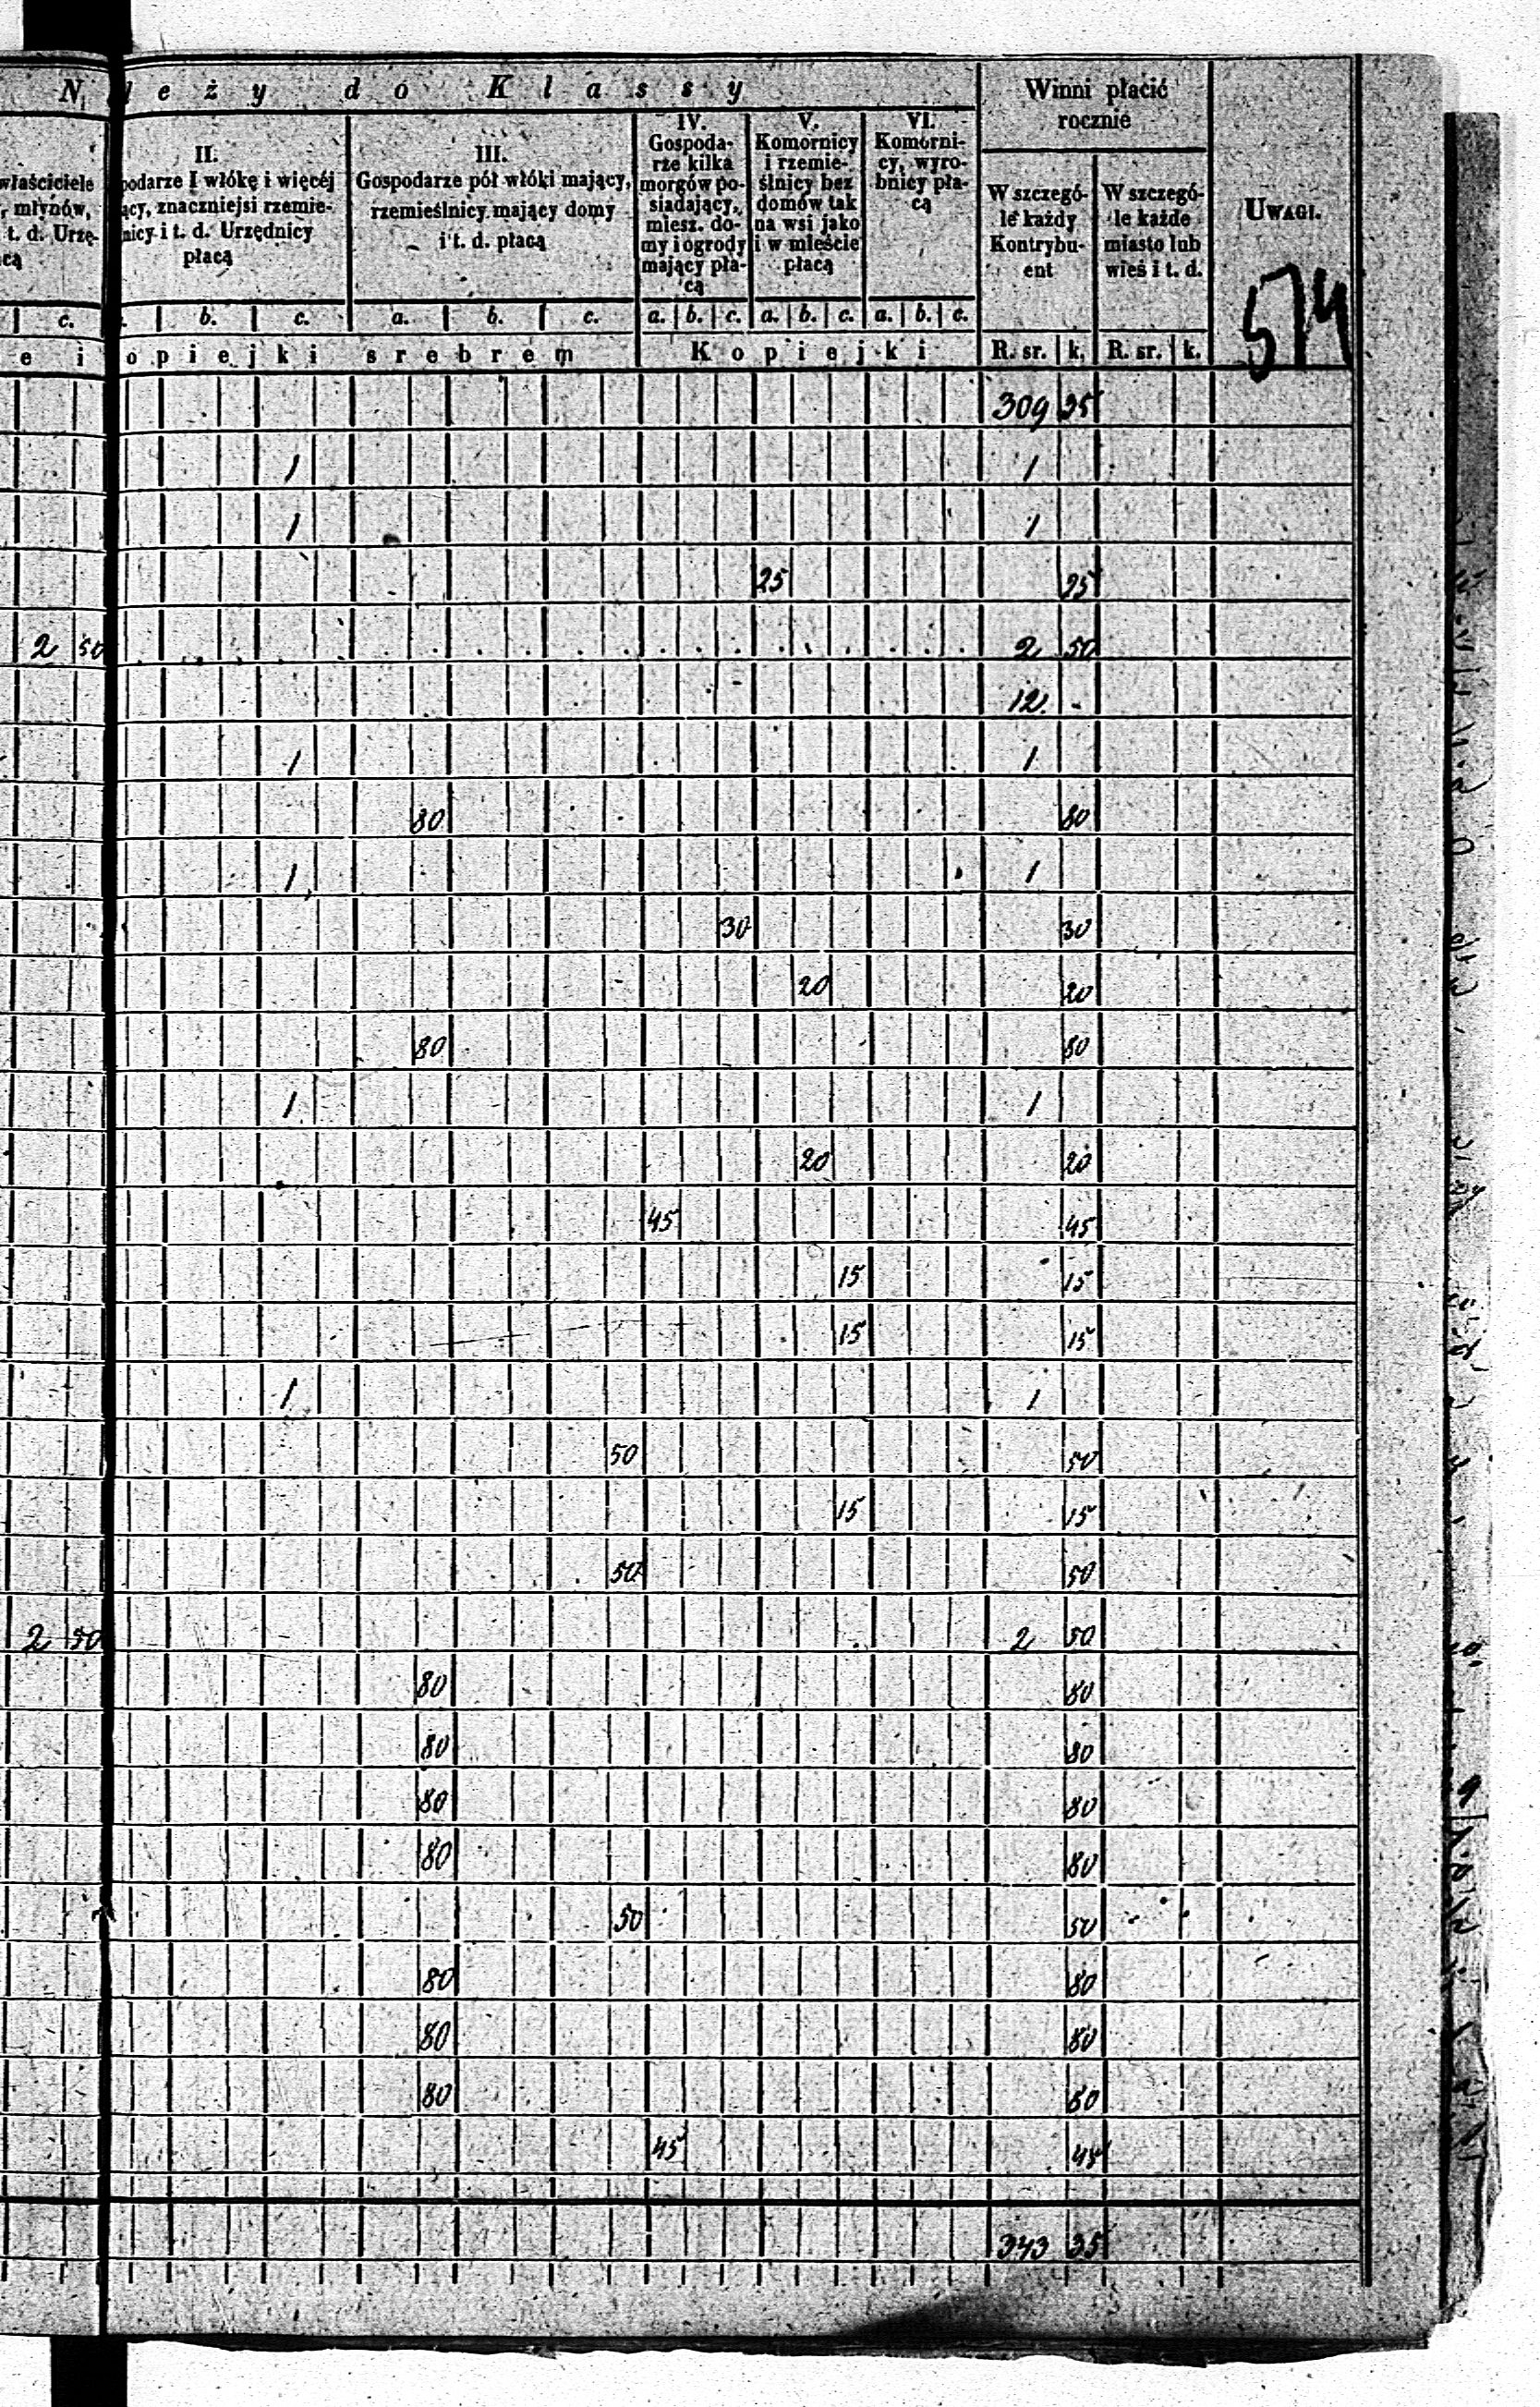 N leży do Klassy
Winni płacić
rocznie
UWAGI.
574
właściciele
, młynów,
t. d. Urzę-
cą
II.
podarze I włókę i więcéj
ący, znaczniejsi rzemie-
nicy i t. d. Urzędnicy
płacą
III.
Gospodarze pół włóki mający,
rzemieślnicy mający domy
i t. d. płacą
IV.
Gospoda-
rze kilka
morgów po-
siadający,
miesz. do-
my i ogrody
mający pła-
cą
V.
Komornicy
i rzemie-
ślnicy bez
domów tak
na wsi jako
i w mieście
płacą
VI.
Komorni-
cy, wyro-
bnicy pła-
cą
W szczegó-
le każdy
Kontrybu-
ent
W szczegó-
le każde
miasto lub
wieś i t. d.
c. b. c. a. b. c. a. b. c. a. b. c. a. b. c.
e i opiejki srebrem Kopiejki R. sr. k. R. sr. k.
309 35
1 1
1 1
25 25
2 50 2 50
12 -
1 1
80 80
1 1
30 30
20 20
80 80
1 1
20 20
45 45
15 15
15 15
1 1
50 50
15 15
50 50
2 50 2 50
80 80
80 80
80 80
80 80
50 50
80 80
80 80
80 80
45 45
343 35